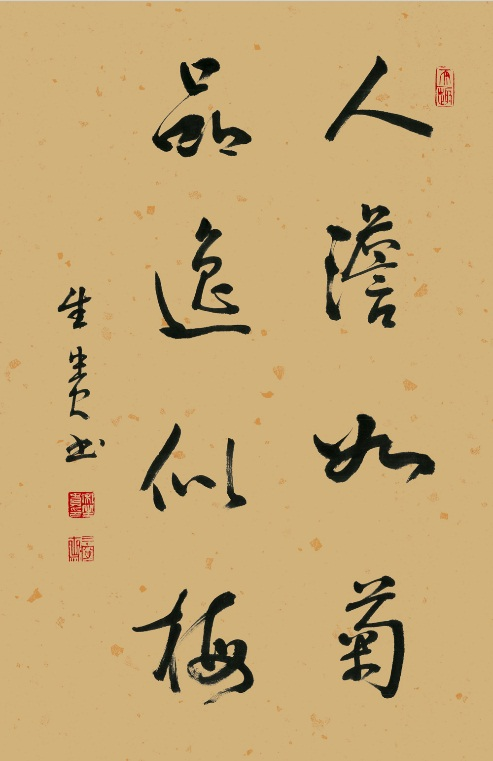 人澹如菊
品逸似梅
生贵书